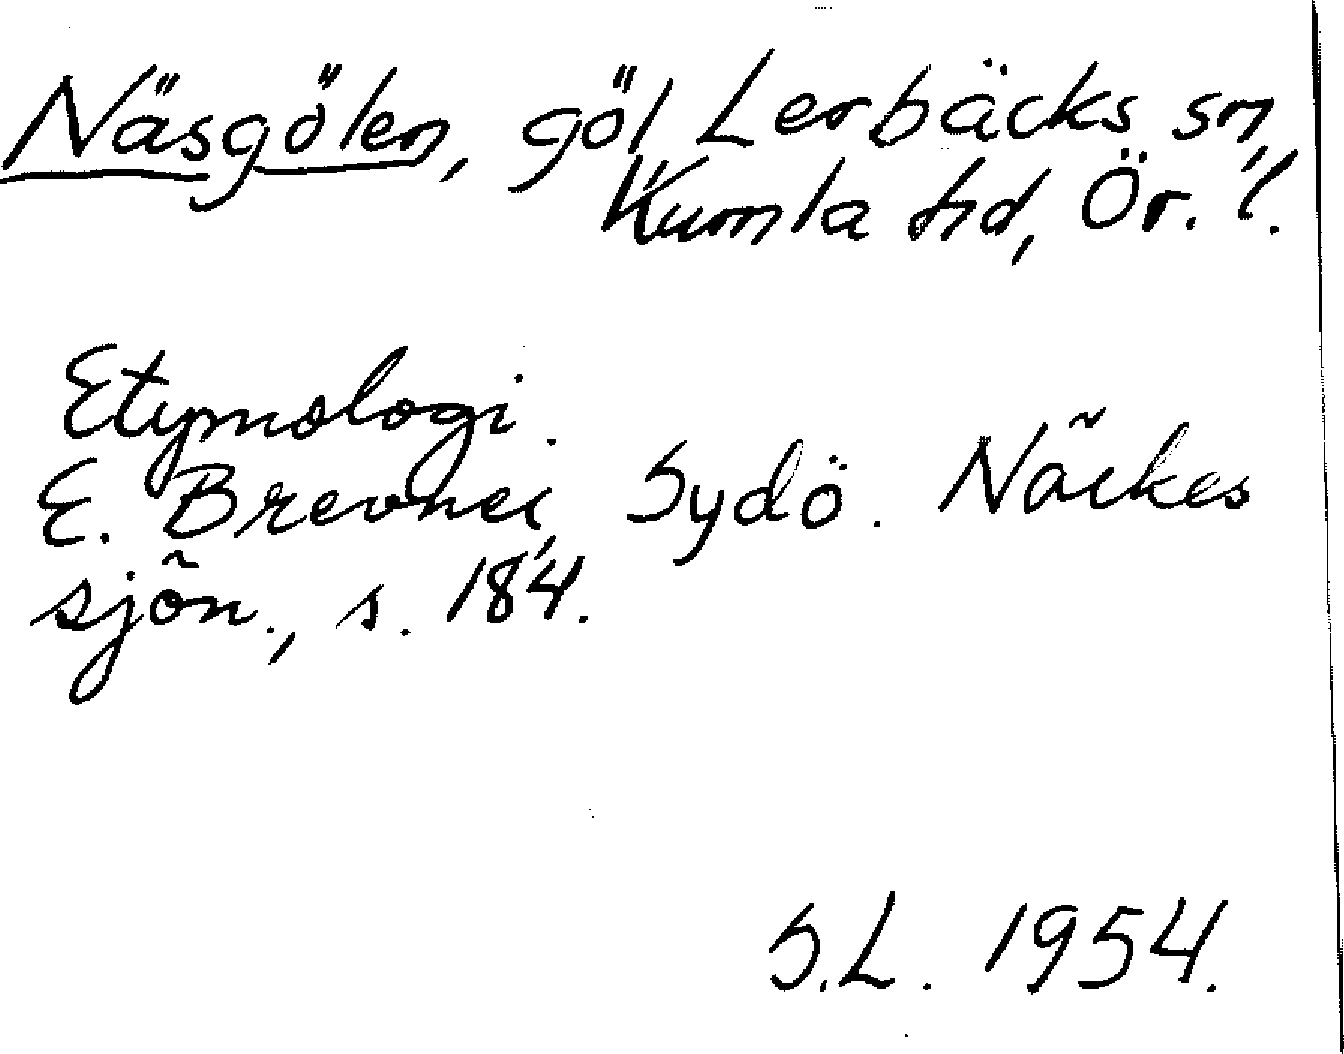 Näsgölen, göl Lerbäcks sn,
Kumla hd, Ör. l.
Etymologi.
E. Brevner, Sydö. Närkes
sjön., s. 184.
S.L. 1954.